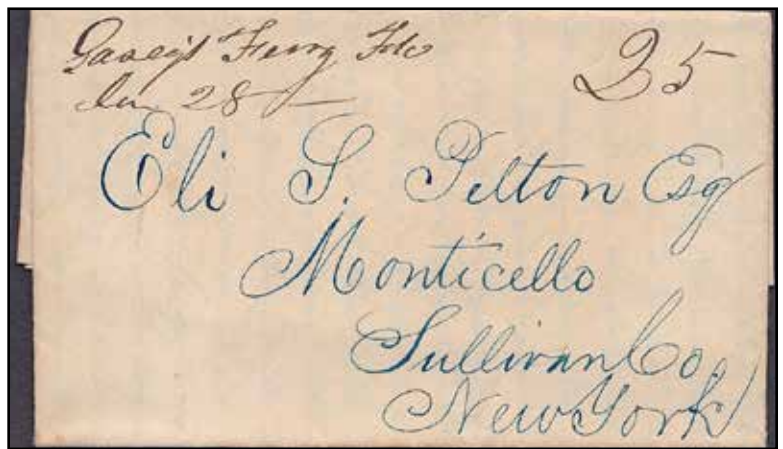 Garey's Ferry Flo
28 25
Eli S. Pelton Esq
Monticello
Sullivan Co.
New York